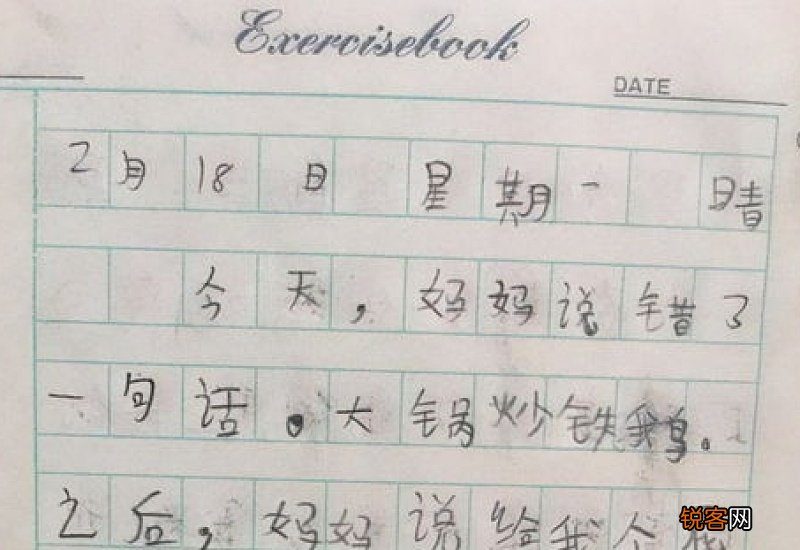 Exercisebook
DATE
2月18日 星期一 晴
今天，妈妈说错了
一句话。大锅炒铁我鸟。
之后，妈妈说给我个
锐客网